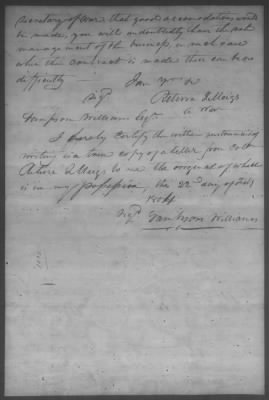 secretary of war that good accomodations would
be made, you will undoubtedly have the
management of the business, in such case
when the contract is made there can be no
difficulty
I am yr &c
Sigd Return J Meigs
Sampson Williams Esqr.
I hereby Certify the within
writing is a true copy of a letter from Colo
Return J Meigs to me the original of which
is in my possession, the 22d day of July
1804
Sigd Sampson Williams